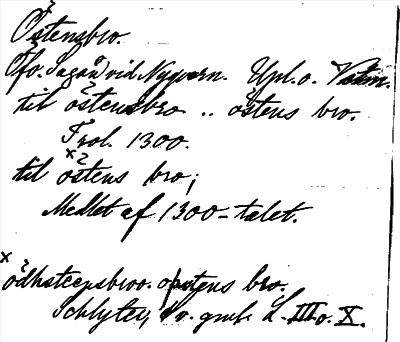 Östensbro.
Öfv. Sagån vid Nyqvarn. Upl. o. Vstm.
til östensbro .. östens bro.
Trol. 1300.
x til östens bro;
Medlet af 1300-talet.
x ödhsteensbroo. östens bro.
Schlyter, Sv. gml. L. III o. X.